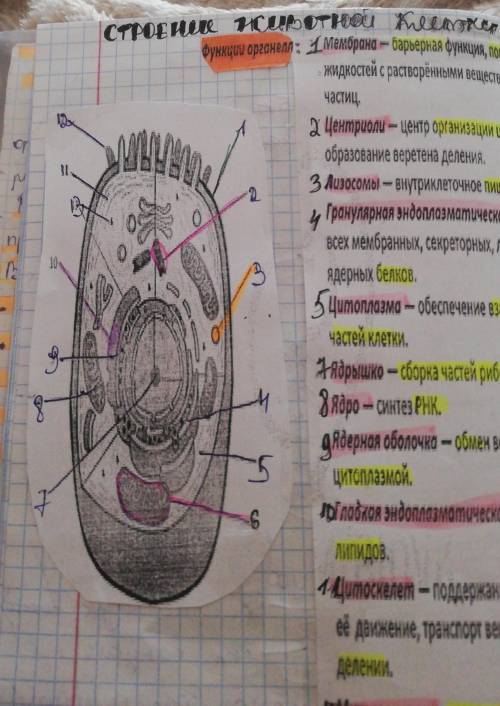 СТРОЕНИЕ ЖИВОТНОЙ КЛЕТКИ
Функции органелл:
1 Мембрана – барьерная функция,
жидкостей с растворёнными
частиц.
2 Центриоли – центр организации
образование веретена деления.
3 Лизосомы – внутриклеточное
4 Гранулярная
всех мембранных, секреторных,
ядерных белков.
5 Цитоплазма – обеспечение
частей клетки.
7 Ядрышко – сборка частей
8 Ядро – синтез РНК.
9 Ядерная оболочка – обмен
цитоплазмой.
10 Гладкая
липидов.
Цитоскелет –
её движение, транспорт
делении.
12
1
11
13
2
10
3
9
8
4
5
7
6